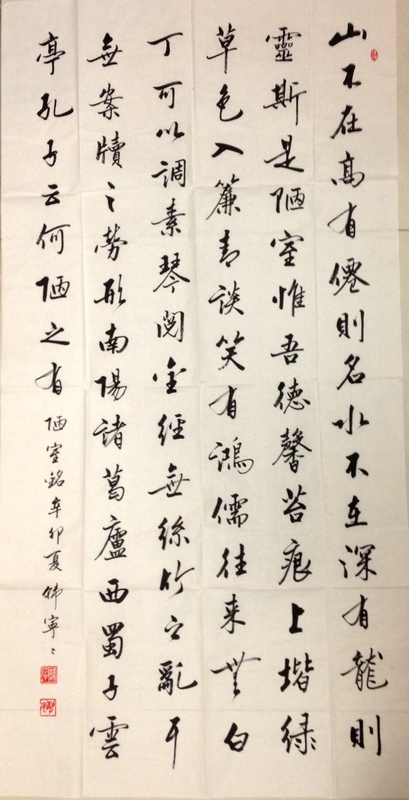 山不在高有僊則名水不在深有龍則
靈斯是陋室惟吾德馨苔痕上堦緑
草色入簾青談笑有鴻儒往来無白
丁可以調素琴閲金經無絲竹之亂耳
無案牘之勞形南陽諸葛廬西蜀子雲
亭孔子云何陋之有 陋室銘辛卯夏韩寧〻